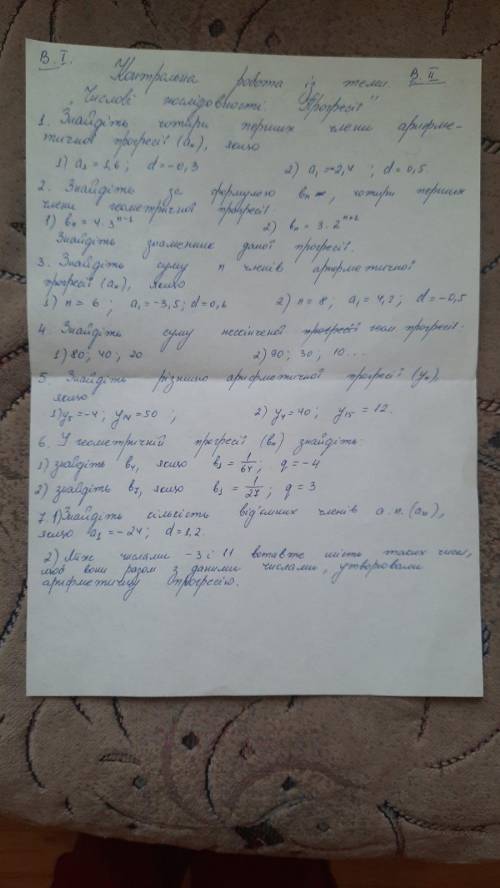 В. І. В. ІІ.
Контрольна робота із теми
"Числові послідовності. Прогресії"
1. Знайдіть чотири перших члени арифме-
тичної прогресії (aₙ), якщо
1) a₁ = 1,6 ; d = -0,3 2) a₁ = -2,4 ; d = 0,5.
2. Знайдіть за формулою bₙ чотири перших
члени геометричної прогресії.
1) bₙ = 4·3ⁿ⁻¹ 2) bₙ = 3·2ⁿ⁺²
Знайдіть знаменник даної прогресії.
3. Знайдіть суму n членів арифметичної
прогресії (aₙ), якщо
1) n = 6 ; a₁ = -3,5 ; d = 0,6 2) n = 8, a₁ = 4,2 ; d = -0,5
4. Знайдіть суму нескінченої геом. прогресії.
1) 80; 40; 20 2) 90; 30; 10...
5. Знайдіть різницю арифметичної прогресії (yₙ),
якщо
1) y₅ = -4; y₁₄ = 50 ; 2) y₄ = 40; y₁₅ = 12.
6. У геометричній прогресії (bₙ) знайдіть:
1) знайдіть b₄, якщо b₁ = 1/64; q = -4
2) знайдіть b₇, якщо b₁ = 1/27; q = 3
7. 1) Знайдіть кількість від'ємних членів а.п. (aₙ),
якщо a₁ = -24; d = 1,2.
2) Між числами -3 і 11 вставте шість таких чисел,
щоб вони разом з даними числами, утворювали
арифметичну прогресію.